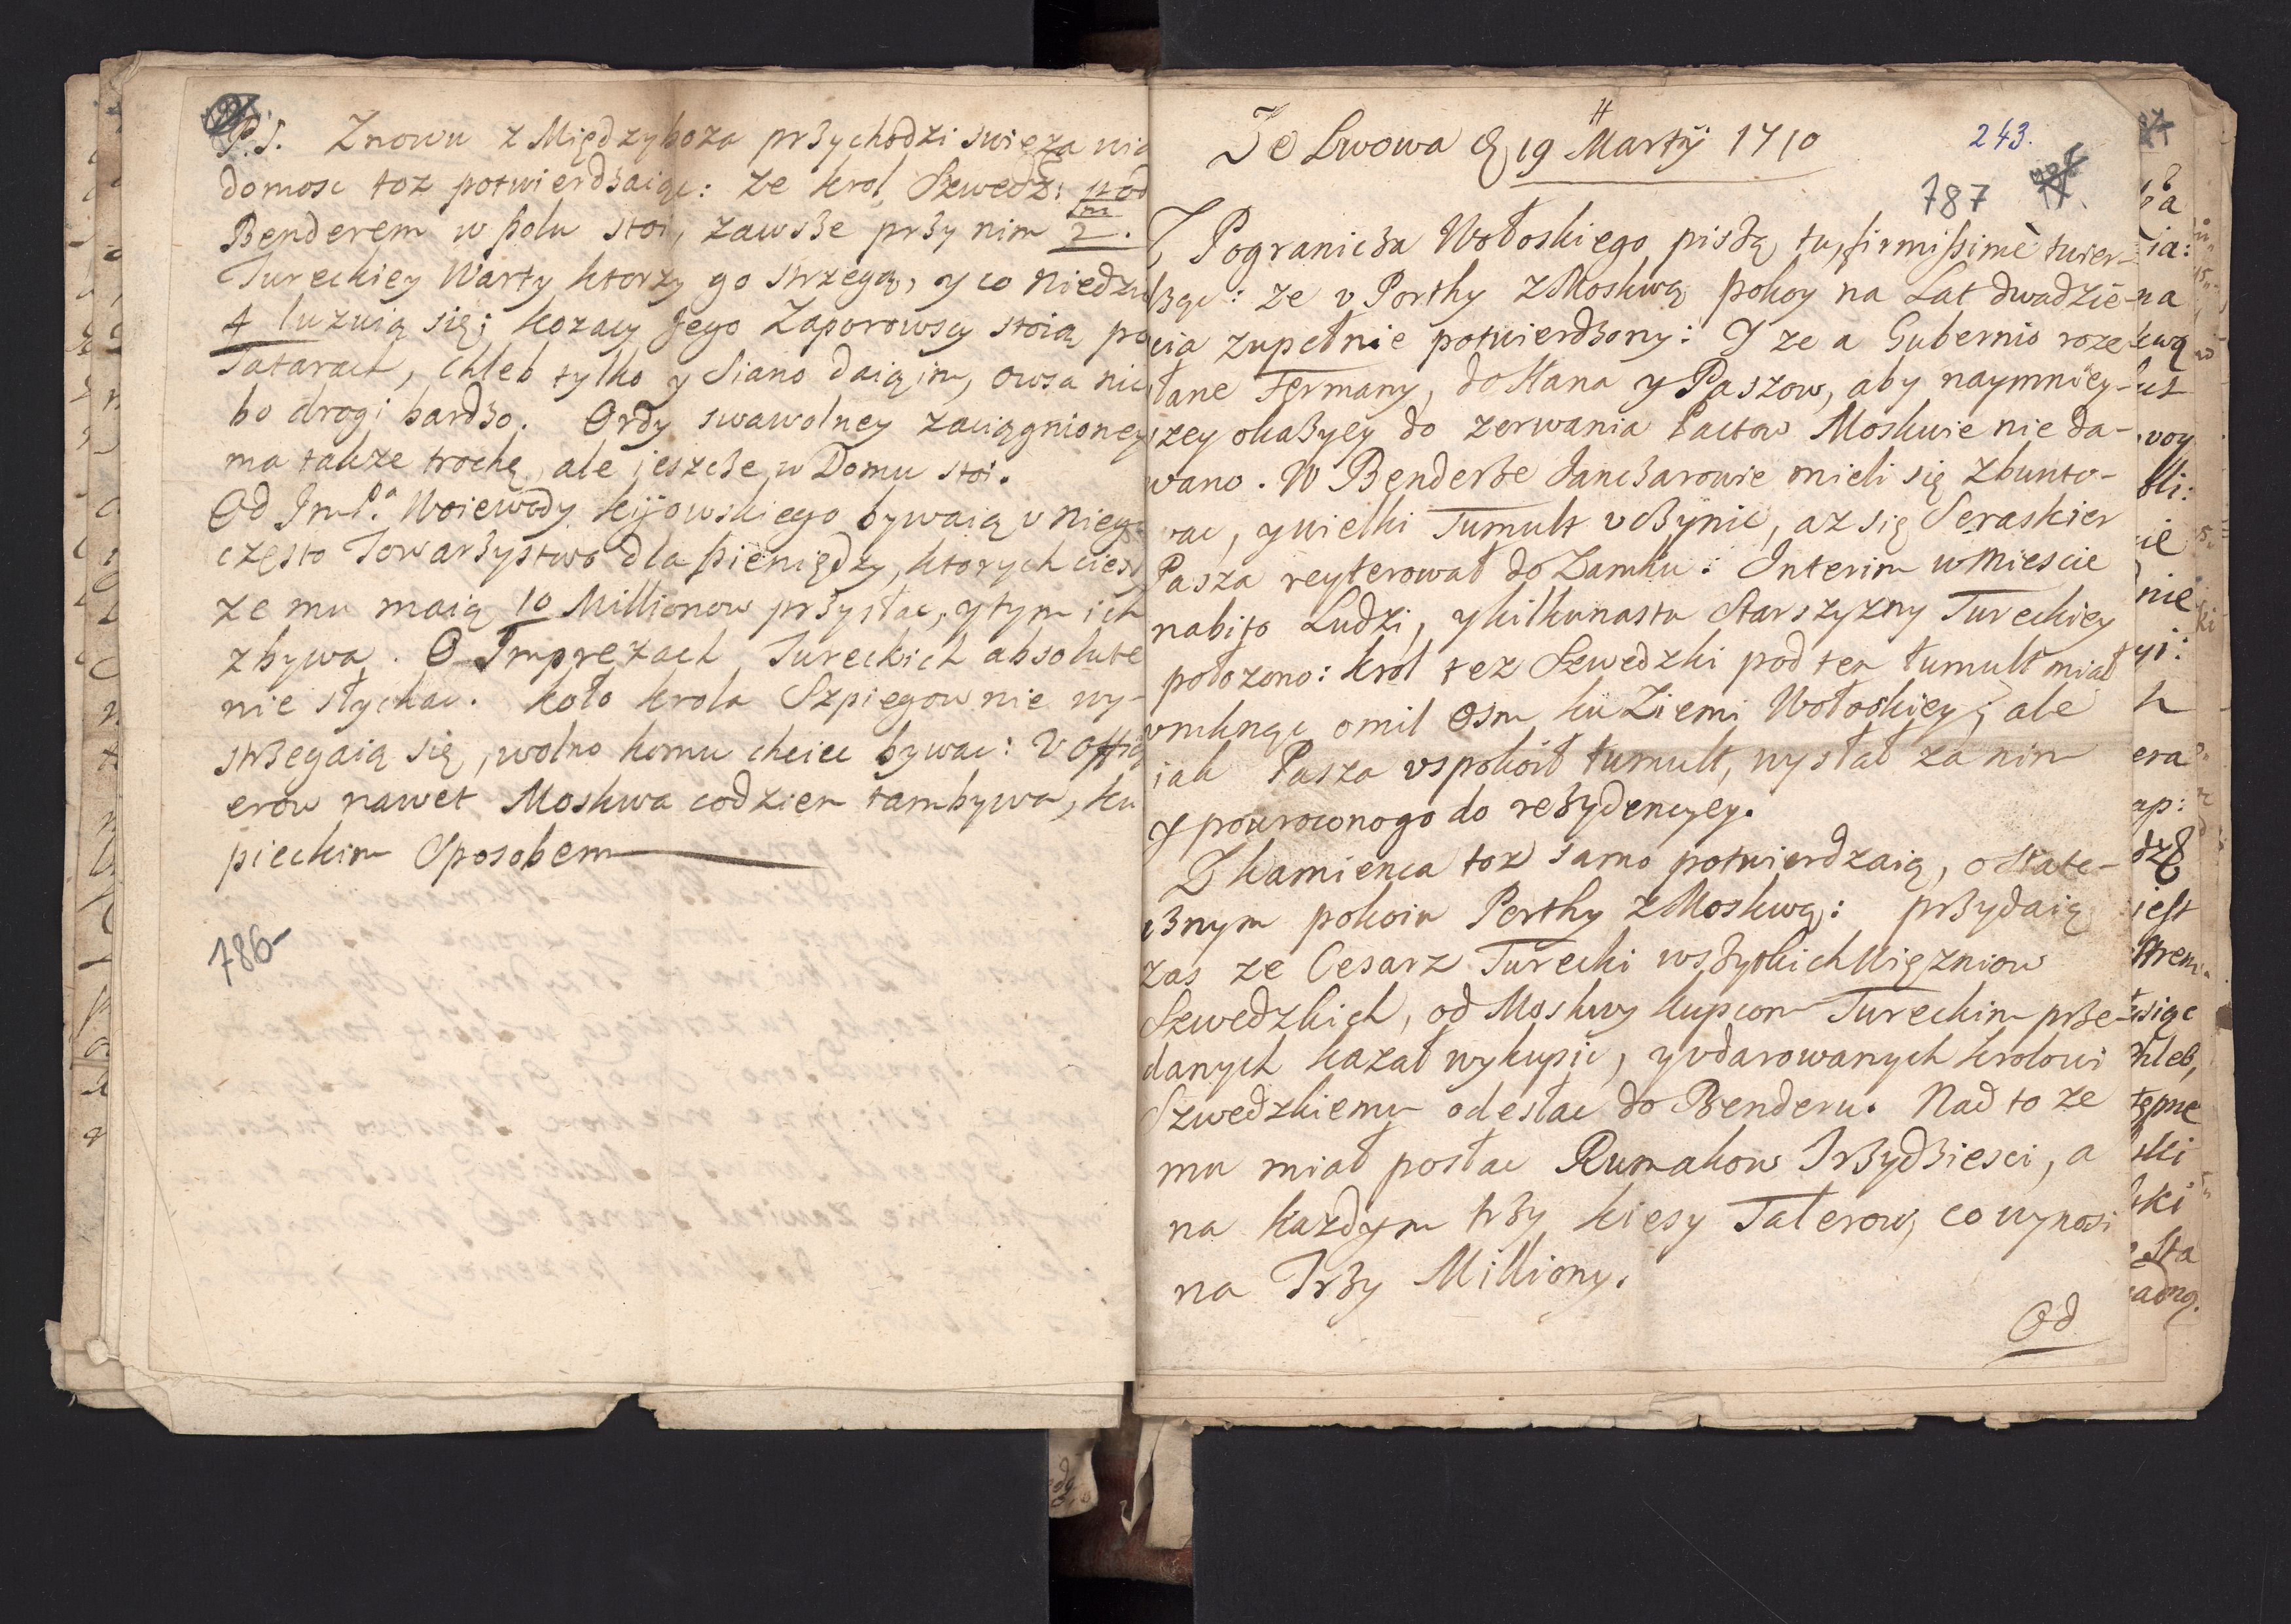 P.S. Znowu z Międzyboza przychodzi swieza wia
domosc toz potwierdzaiąc: ze krol Szwedz: pod
Benderem w polu stoi, zawsze przy nim 2/m.
Tureckiey Warty ktorzy go strzegą, y co Niedzie
4 luzuią się; kozacy Jego Zaporowscy stoią po
Tatarach, Chleb tylko y Siano daią im, owsa nie
bo drogi bardzo. Ordy swawolney zaciągnioney
ma takze trochę, ale jeszcze w Domu stoi.
Od ImPa. Woiewody kijowskiego bywaią v niego
często Towarzystwo dla pieniędzy, ktorych ciesz
ze mu maią 10 Millionow przysłac, y tym ich
zbywa. O Imprezach Tureckich absolute
nie słychac. koło krola Szpiegow nie wy-
strzegaią się, wolno komu chciec bywac: V offic
erow nawet Moskwa codzien tam bywa, ku
pieckim Sposobem
786
Ze Lwowa d 19 Martij 1710
243.
787
Z Pogranicza Wołoskiego piszą tu, firmissimè twier-
dząc: ze v Porthy z Moskwą pokoy na Lat dwadzie-
cia zupełnie potwierdzony: I ze a Gubernio roze
słane Fermany, do Hana y Paszow, aby naymniey-
szey okazyey do zerwania Pactow Moskwie nie da-
wano. W Benderze Janczarowie mieli się zbunto-
wac, y wielki Tumult vczynic, az się Seraskier
Pasza reyterował do Zamku: Interim w Miescie
nabito Ludzi, y kilkunastu Starszyzny Tureckiey
położono: krol tez Szwedzki pod ten tumult miał
vmknąc o mil Osm ku Ziemi Wołoskiey; ale
iak Pasza vspokoił tumult, wysłał za nim
y powrocono go do rezydencyey.
Z kamienca toz samo potwierdzaią, o state-
cznym pokoiu Porthy z Moskwą: przydaią
zas ze Cesarz Turecki wszytkich Więzniow
Szwedzkich, od Moskwy kupcom Tureckim prze-
danych kazał wykupic, y vdarowanych krolowi
Szwedzkiemu odesłac do Benderu. Nad to ze
mu miał posłac Rumakow Trzydziesci, a
na kazdym trzy kiesy Talerow, co wynosi
na Trzy Milliony.
Od